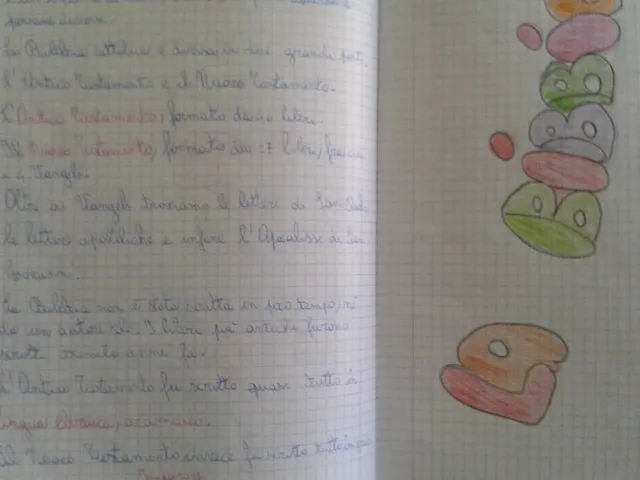 La Bibbia cattolica è divisa in due grandi parti,
l'Antico Testamento e il Nuovo Testamento.
L'Antico Testamento, formato da libri.
Il Nuovo Testamento, formato da 27 libri, fra cui
i 4 Vangeli.
Oltre ai Vangeli troviamo le lettere di San
le lettere apostoliche e infine l'Apocalisse di San
Giovanni.
La Bibbia non è stata scritta in poco tempo, né
da un autore solo. I libri più antichi furono
scritti tremila anni fa.
L'Antico Testamento fu scritto quasi tutto in
lingua ebraica, aramaico.
Il Nuovo Testamento invece fu scritto tutto in
La
Bibbia